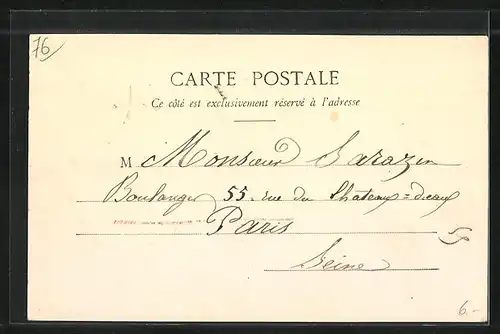 76
CARTE POSTALE
Ce côté est exclusivement réservé à l'adresse
M Monsieur Sarazin
Boulanger 55. rue du Chateau=d'eau
Paris
Seine
6.-